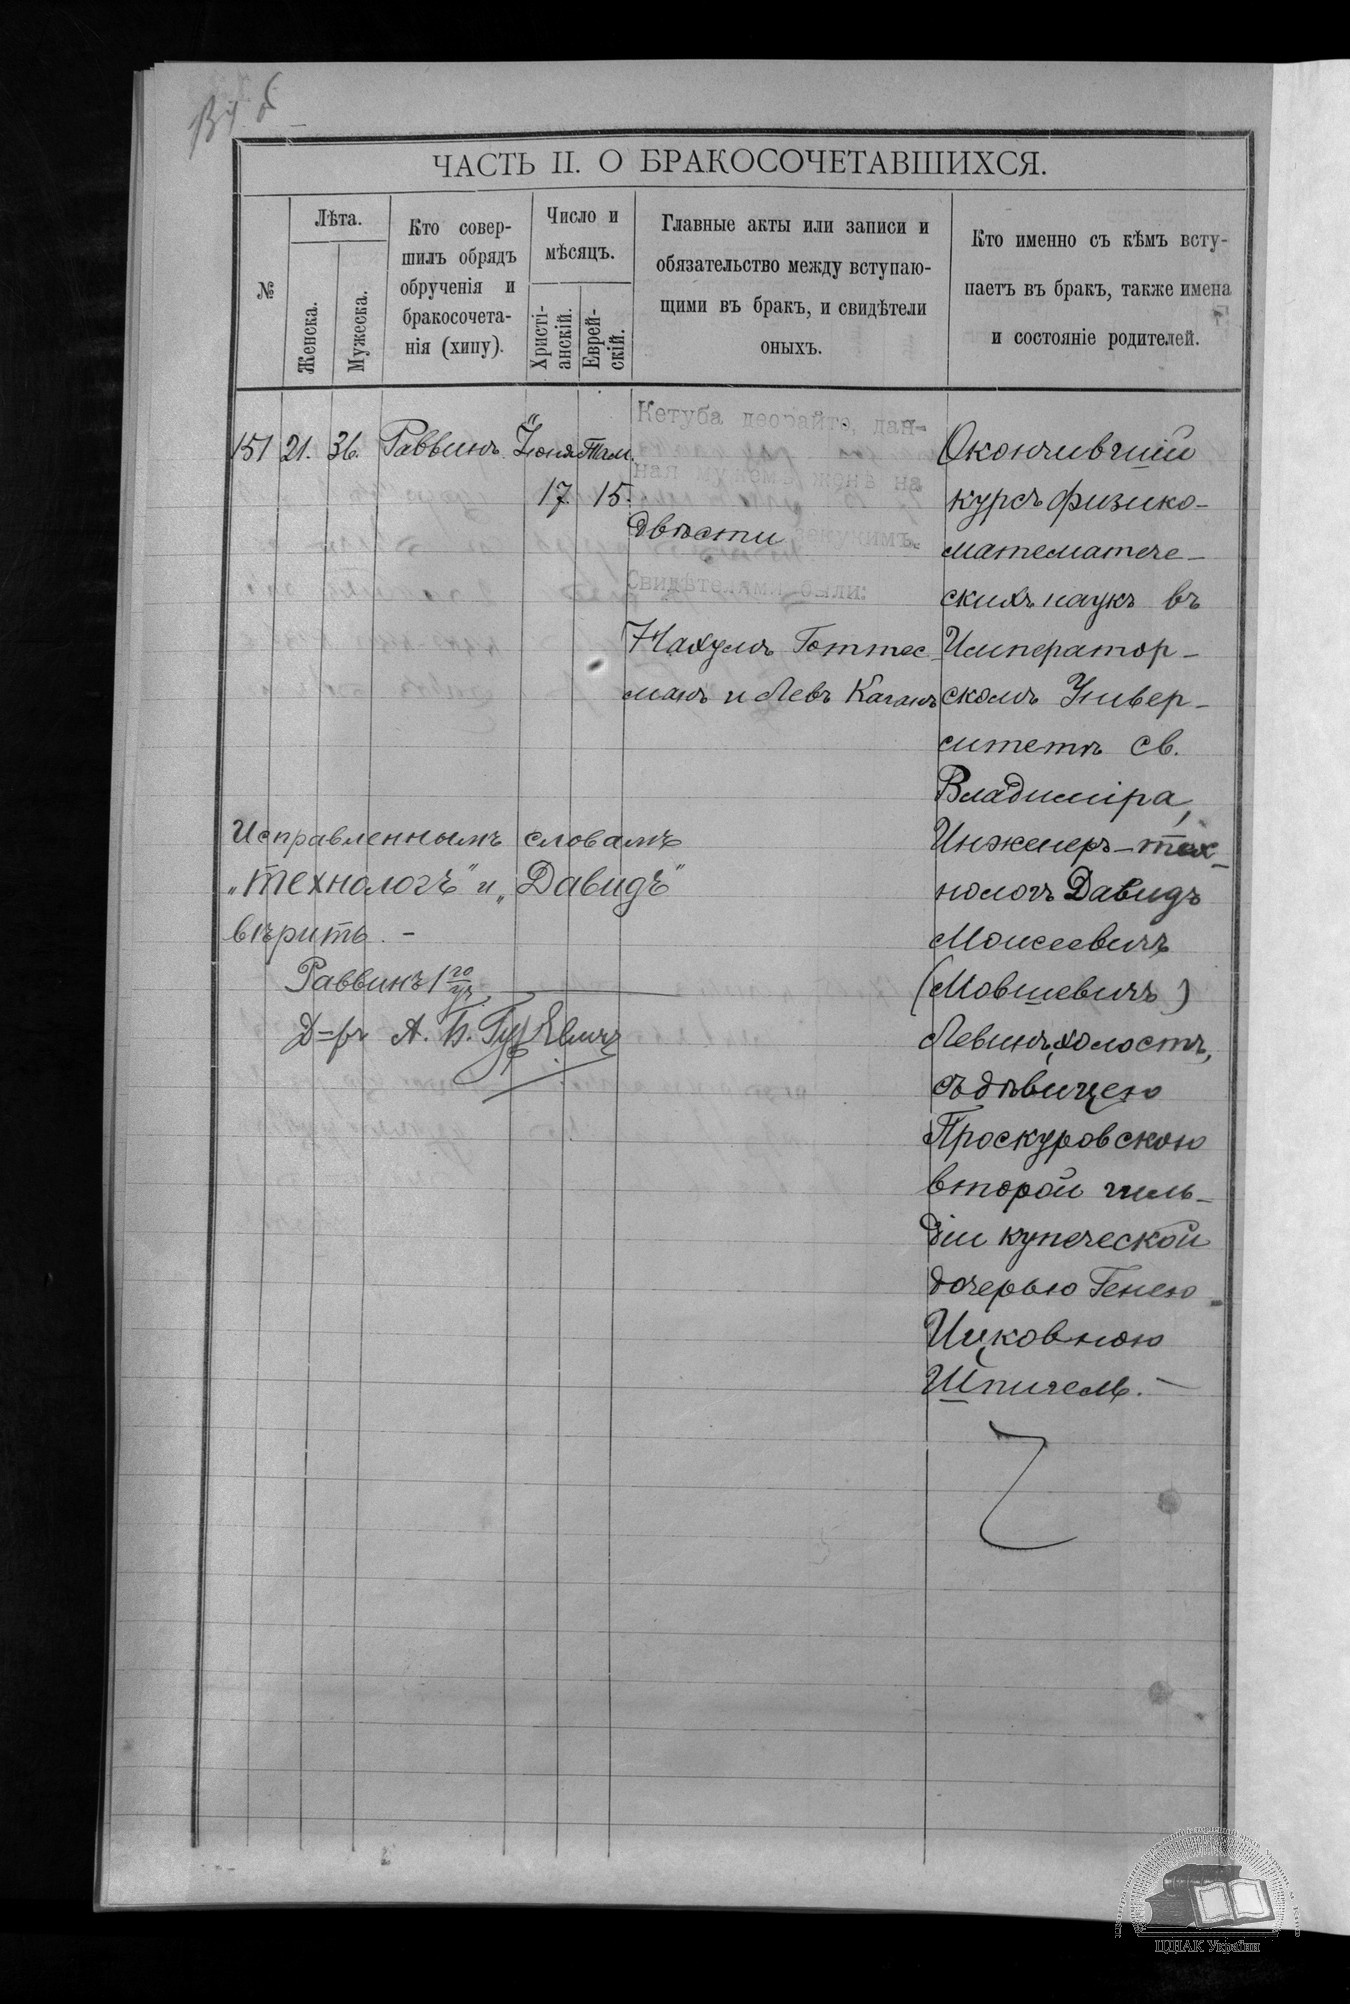 ЧАСТЬ II. О БРАКОСОЧЕТАВШИХСЯ.
№
Лѣта.
Женска.
Мужеска.
Кто совер-
шилъ обрядъ
обрученія и
бракосочета-
нія (хипу).
Число и
мѣсяцъ.
Христі-
анскій.
Еврей-
скій.
Главные акты или записи и
обязательство между вступаю-
щими въ бракъ, и свидѣтели
оныхъ.
Кто именно съ кѣмъ всту-
паетъ въ бракъ, также имена
и состояніе родителей.
151 21. 36. Раввинъ Іюня Там.
17 15.
Кетуба деорайте, дан-
ная мужемъ жене на
двѣсти зекукимъ.
Свидѣтелями были:
Нахумъ Готтес-
манъ и Левъ Каганъ
Окончившій
курсъ физико-
математиче-
скихъ наукъ въ
Император-
скомъ Универ-
ситетѣ св.
Владиміра,
Инженеръ-тех-
нологъ Давидъ
Моисеевичъ
(Мовшевичъ)
Левинъ, холостъ,
съ дѣвицею
Проскуровскою
второй гиль-
діи купеческой
дочерью Генею
Ицковною
Шпигель. —
Исправленнымъ словамъ
„технологъ" и „Давидъ"
вѣрить. —
Раввинъ 1го уч.
Д-ръ А. Б. Гуревичъ
ЦДІАК України